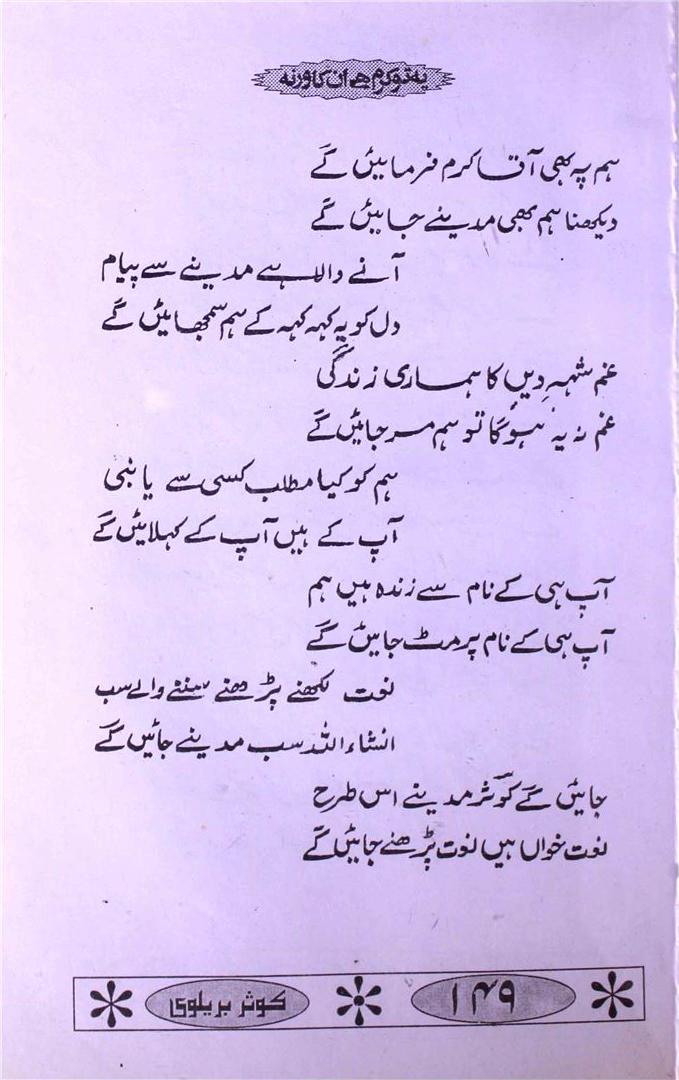 یہ تو کرم ہے ان کا ورنہ
ہم پہ بھی آقا کرم فرمائیں گے
دیکھنا ہم بھی مدینے جائیں گے
آنے والا ہے مدینے سے پیام
دل کو یہ کہہ کہہ کے ہم سمجھائیں گے
غم شہہِ دیں کا ہماری زندگی
غم نہ یہ ہوگا تو ہم مر جائیں گے
ہم کو کیا مطلب کسی سے یا نبی
آپ کے ہیں آپ کے کہلائیں گے
آپ ہی کے نام سے زندہ ہیں ہم
آپ ہی کے نام پر مٹ جائیں گے
نعت لکھنے پڑھنے سننے والے سب
انشاء اللہ سب مدینے جائیں گے
جائیں گے کوثرؔ مدینے اس طرح
نعت خواں ہیں نعت پڑھنے جائیں گے
کوثر بریلوی
۱۴۹